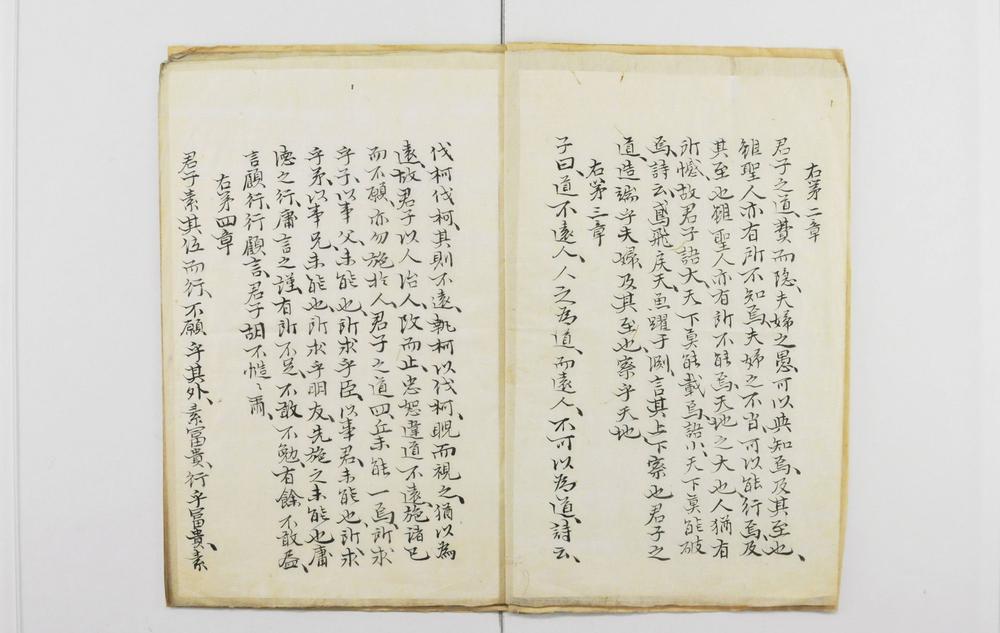 右第二章
君子之道、費而隐、夫婦之愚、可以與知焉、及其至也、
雖聖人亦有所不知焉、夫婦之不肖、可以能行焉、及
其至也、雖聖人亦有所不能焉、天地之大也、人猶有
所憾、故君子語大、天下莫能載焉、語小、天下莫能破
焉、詩云、鳶飛戾天、魚躍于淵、言其上下察也、君子之
道、造端乎夫婦、及其至也、察乎天地、
右第三章
子曰、道不遠人、人之為道、而遠人、不可以為道、詩云、
伐柯伐柯、其則不遠、執柯以伐柯、睨而視之、猶以為
遠、故君子以人治人、改而止、忠恕違道不遠、施諸己
而不願、亦勿施於人、君子之道四、丘未能一焉、所求
乎子、以事父、未能也、所求乎臣、以事君、未能也、所求
乎弟、以事兄、未能也、所求乎朋友、先施之、未能也、庸
德之行、庸言之謹、有所不足、不敢不勉、有餘不敢盡、
言顧行、行顧言、君子胡不慥〻爾、
右第四章
君子素其位而行、不願乎其外、素富貴、行乎富貴、素